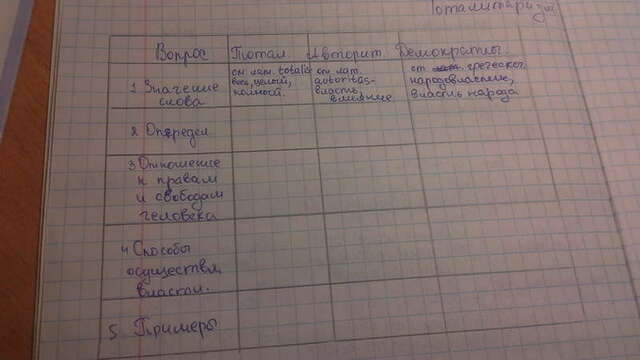 Тоталитаризм
Вопрос Тотал. Авторит. Демократич.
1 Значение слова
от лат. totalis весь, целый, полный.
от лат. autoritas- власть, влияние
от лат. греческого народовластие, власть народа
2 Определ
3 Отношение
к правам
и свободам
человека
4 Способы
осуществл.
власти.
5 Примеры